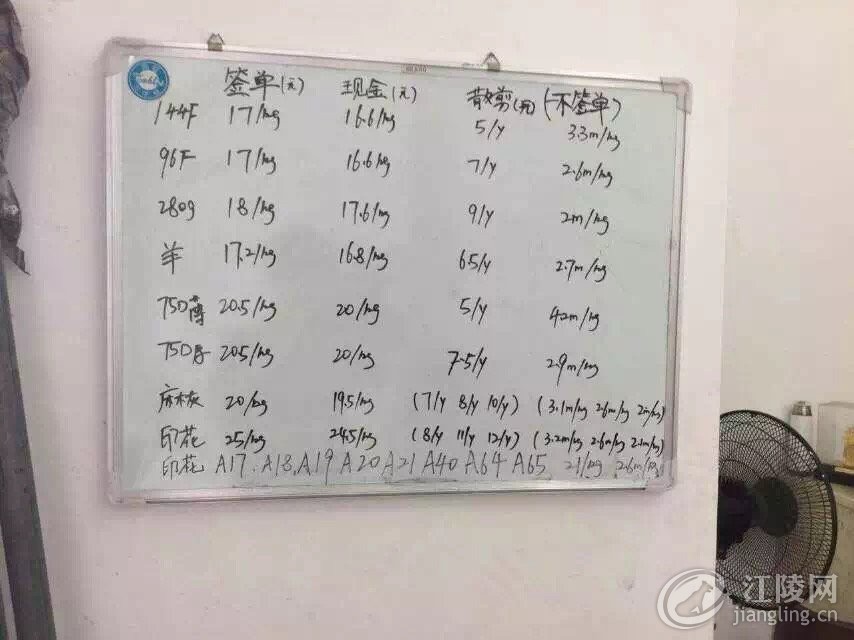 签单(元) 现金(元) 散剪(元) (不签单)
144F 17/kg 16.6/kg 5/y 3.3m/kg
96F 17/kg 16.6/kg 7/y 2.6m/kg
280g 18/kg 17.6/kg 9/y 2m/kg
羊 17.2/kg 16.8/kg 6.5/y 2.7m/kg
75D薄 20.5/kg 20/kg 5/y 4.2m/kg
75D厚 20.5/kg 20/kg 7.5/y 2.9m/kg
麻灰 20/kg 19.5/kg (7/y 8/y 10/y) (3.1m/kg 2.6m/kg 2m/kg)
印花 25/kg 24.5/kg (8/y 11/y 12/y) (3.2m/kg 2.6m/kg 2.1m/kg)
印花 A17. A18. A19 A20 A21 A40 A64 A65 2.6m/kg
江陵网
jiangling.cn